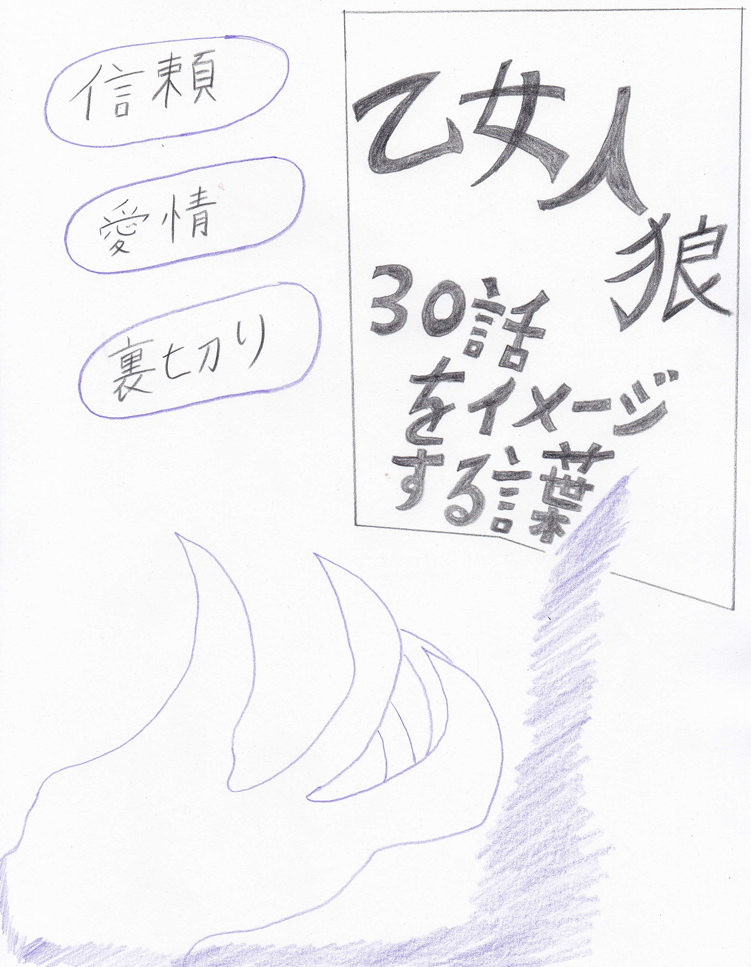 信頼
愛情
裏切り
乙女人狼
30話
をイメージ
する言葉